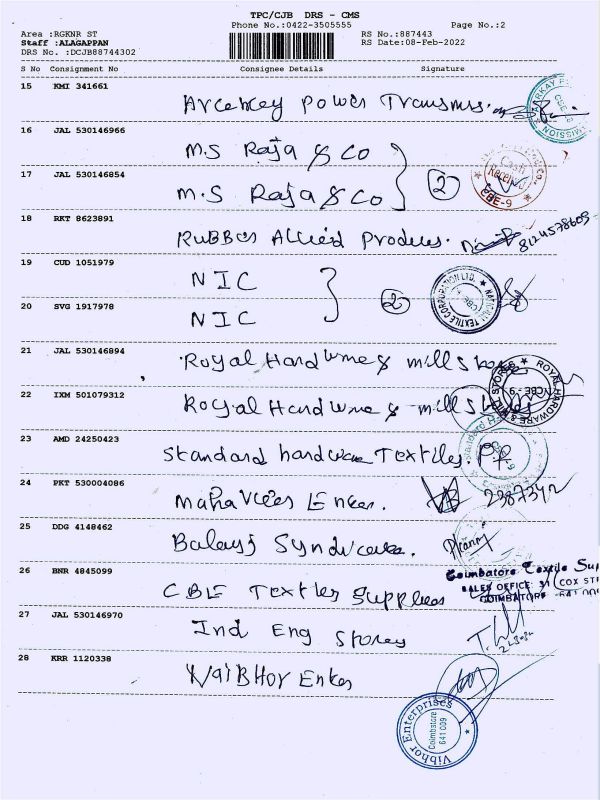 TPC/CJB DRS - CMS
Phone No.:0422-3505555
Page No.:2
Area :RGKNR ST
Staff :ALAGAPPAN
DRS No. :DCJB88744302
RS No.:887443
RS Date:08-Feb-2022
S No Consignment No Consignee Details Signature
15 KMI 341661
Power Transmss.
16 JAL 530146966
M.S Raja & Co
17 JAL 530146854
M.S Raja & Co
2
Cash Received
CBE-9
18 RKT 8623891
Allied
19 CUD 1051979
NIC
20 SVG 1917978
NIC
2
NATIONAL TEXTILE CORPORATION LTD.
CBE
21 JAL 530146894
Royal Hardware & mill stores
22 IXM 501079312
Royal Hardware & mill stores
ROYAL HARDWARE & MILL STORES
CBE-9
23 AMD 24250423
Standard hardware Textiles.
Standard
24 PKT 530004086
2387342
25 DDG 4148462
Balaji
26 BNR 4845099
CBE Textiles
Coimbatore Textile Sup
SALES OFFICE: 31 COX ST
COIMBATORE - 641 001
27 JAL 530146970
Ind Eng Stores
28 KRR 1120338
VaiBHOV
Vibhor Enterprises
Coimbatore
641 009